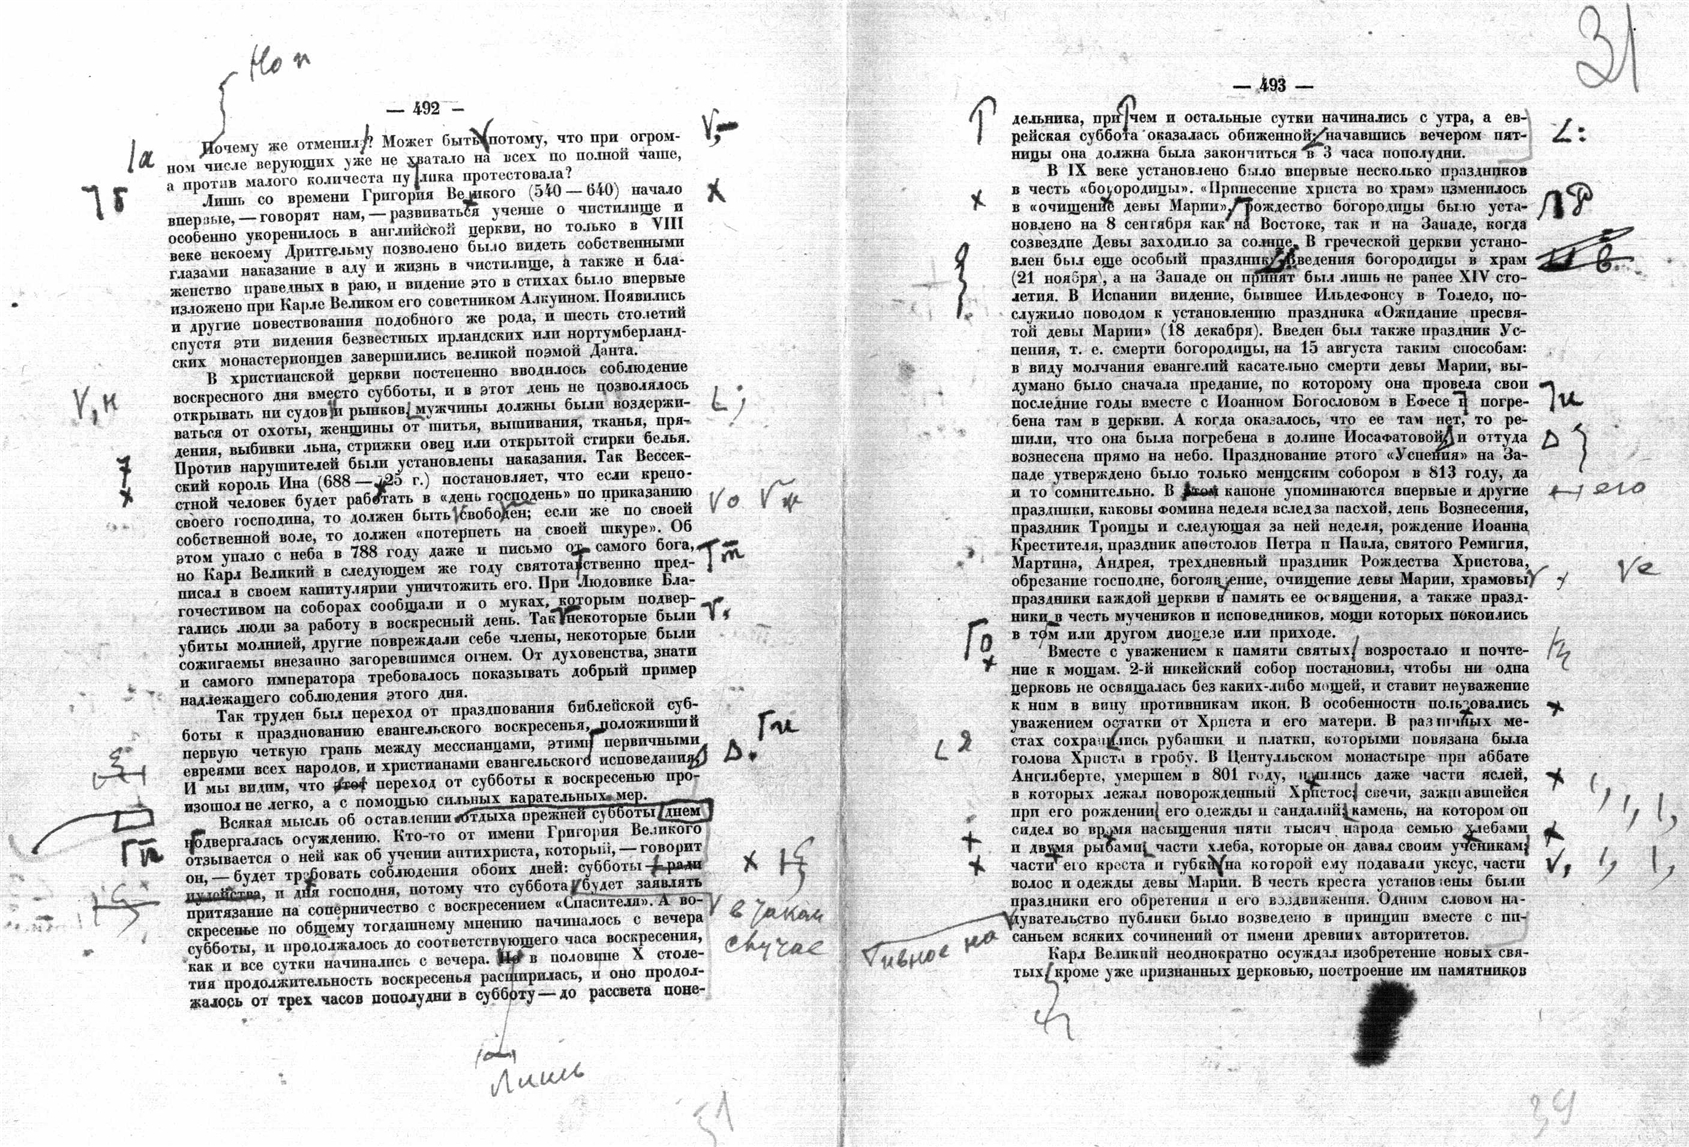 Нон
31
— 492 —
Почему же отменил? Может быть потому, что при огром-
ном числе верующих уже не хватало на всех по полной чаше,
а против малого количеста пу лика протестовала?
Лишь со времени Григория Великого (540—640) начало
впервые,—говорят нам,—развиваться учение о чистилище и
особенно укоренилось в английской церкви, но только в VIII
веке некоему Дритгельму позволено было видеть собственными
глазами наказание в аду и жизнь в чистилище, а также и бла-
женство праведных в раю, и видение это в стихах было впервые
изложено при Карле Великом его советником Алкуином. Появились
и другие повествования подобного же рода, и шесть столетий
спустя эти видения безвестных ирландских или нортумберланд-
ских монастерионцев завершились великой поэмой Данта.
В христианской церкви постепенно вводилось соблюдение
воскресного дня вместо субботы, и в этот день не позволялось
открывать ни судов и рынков, мужчины должны были воздержи-
ваться от охоты, женщины от шитья, вышивания, тканья, пря-
дения, выбивки льна, стрижки овец или открытой стирки белья.
Против нарушителей были установлены наказания. Так Вессек-
ский король Ина (688— 725 г.) постановляет, что если крепо-
стной человек будет работать в «день господень» по приказанию
своего господина, то должен быть свободен; если же по своей
собственной воле, то должен «потерпеть на своей шкуре». Об
этом упало с неба в 788 году даже и письмо от самого бога,
но Карл Великий в следующем же году святотатственно пред-
писал в своем капитулярии уничтожить его. При Людовике Бла-
гочестивом на соборах сообщали и о муках, которым подвер-
гались люди за работу в воскресный день. Так некоторые были
убиты молнией, другие повреждали себе члены, некоторые были
сожигаемы внезапно загоревшимся огнем. От духовенства, знати
и самого императора требовалось показывать добрый пример
надлежащего соблюдения этого дня.
Так труден был переход от празднования библейской суб-
боты к празднованию евангельского воскресенья, положивший
первую четкую грань между мессианцами, этими первичными
евреями всех народов, и христианами евангельского исповедания.
И мы видим, что этот переход от субботы к воскресенью про-
изошол не легко, а с помощью сильных карательных мер.
Всякая мысль об оставлении отдыха прежней субботы днем
подвергалась осуждению. Кто-то от имени Григория Великого
отзывается о ней как об учении антихриста, который,—говорит
он,—будет требовать соблюдения обоих дней: субботы—ради
иудейства, и дня господня, потому что суббота будет заявлять
притязание на соперничество с воскресением «Спасителя». А во-
скресенье по общему тогдашнему мнению начиналось с вечера
субботы, и продолжалось до соответствующего часа воскресения,
как и все сутки начинались с вечера. Но в половине X столе-
тия продолжительность воскресенья расширилась, и оно продол-
жалось от трех часов пополудни в субботу—до рассвета поне-
в таком
случае
Лишь
51
— 493 —
дельника, при чем и остальные сутки начинались с утра, а ев-
рейская суббота оказалась обиженной: начавшись вечером пят-
ницы она должна была закончиться в 3 часа пополудни.
В IX веке установлено было впервые несколько праздников
в честь «богородицы». «Принесение христа во храм» изменилось
в «очищение девы Марии», рождество богородицы было уста-
новлено на 8 сентября как на Востоке, так и на Западе, когда
созвездие Девы заходило за солнце. В греческой церкви устано-
влен был еще особый праздник введения богородицы в храм
(21 ноября), а на Западе он принят был лишь не ранее XIV сто-
летия. В Испании видение, бывшее Ильдефонсу в Толедо, по-
служило поводом к установлению праздника «Ожидание пресвя-
той девы Марии» (18 декабря). Введен был также праздник Ус-
пения, т. е. смерти богородицы, на 15 августа таким способам:
в виду молчания евангелий касательно смерти девы Марии, вы-
думано было сначала предание, по которому она провела свои
последние годы вместе с Иоанном Богословом в Ефесе и погре-
бена там в церкви. А когда оказалось, что ее там нет, то ре-
шили, что она была погребена в долине Иосафатовой, и оттуда
вознесена прямо на небо. Празднование этого «Успения» на За-
паде утверждено было только менцским собором в 813 году, да
и то сомнительно. В этом каноне упоминаются впервые и другие
праздники, каковы фомина неделя вслед за пасхой, день Вознесения,
праздник Троицы и следующая за ней неделя, рождение Иоанна
Крестителя, праздник апостолов Петра и Павла, святого Ремигия,
Мартина, Андрея, трехдневный праздник Рождества Христова,
обрезание господне, богоявление, очищение девы Марии, храмовы
праздники каждой церкви в память ее освящения, а также празд-
ники в честь мучеников и исповедников, мощи которых покоились
в том или другом диоцезе или приходе.
Вместе с уважением к памяти святых, возростало и почте-
ние к мощам. 2-й никейский собор постановил, чтобы ни одна
церковь не освящалась без каких-либо мощей, и ставит неуважение
к ним в вину противникам икон. В особенности пользовались
уважением остатки от Христа и его матери. В различных ме-
стах сохранились рубашки и платки, которыми повязана была
голова Христа в гробу. В Центулльском монастыре при аббате
Ангилберте, умершем в 801 году, нашлись даже части яслей,
в которых лежал новорожденный Христос, свечи, зажигавшейся
при его рождении, его одежды и сандалий, камень, на котором он
сидел во время насыщения пяти тысяч народа семью хлебами
и двумя рыбами, части хлеба, которые он давал своим ученикам,
части его креста и губки на которой ему подавали уксус, части
волос и одежды девы Марии. В честь креста установлены были
праздники его обретения и его воздвижения. Одним словом на-
дувательство публики было возведено в принцип вместе с пи-
саньем всяких сочинений от имени древних авторитетов.
Карл Великий неоднократно осуждал изобретение новых свя-
тых, кроме уже признанных церковью, построение им памятников
его
39